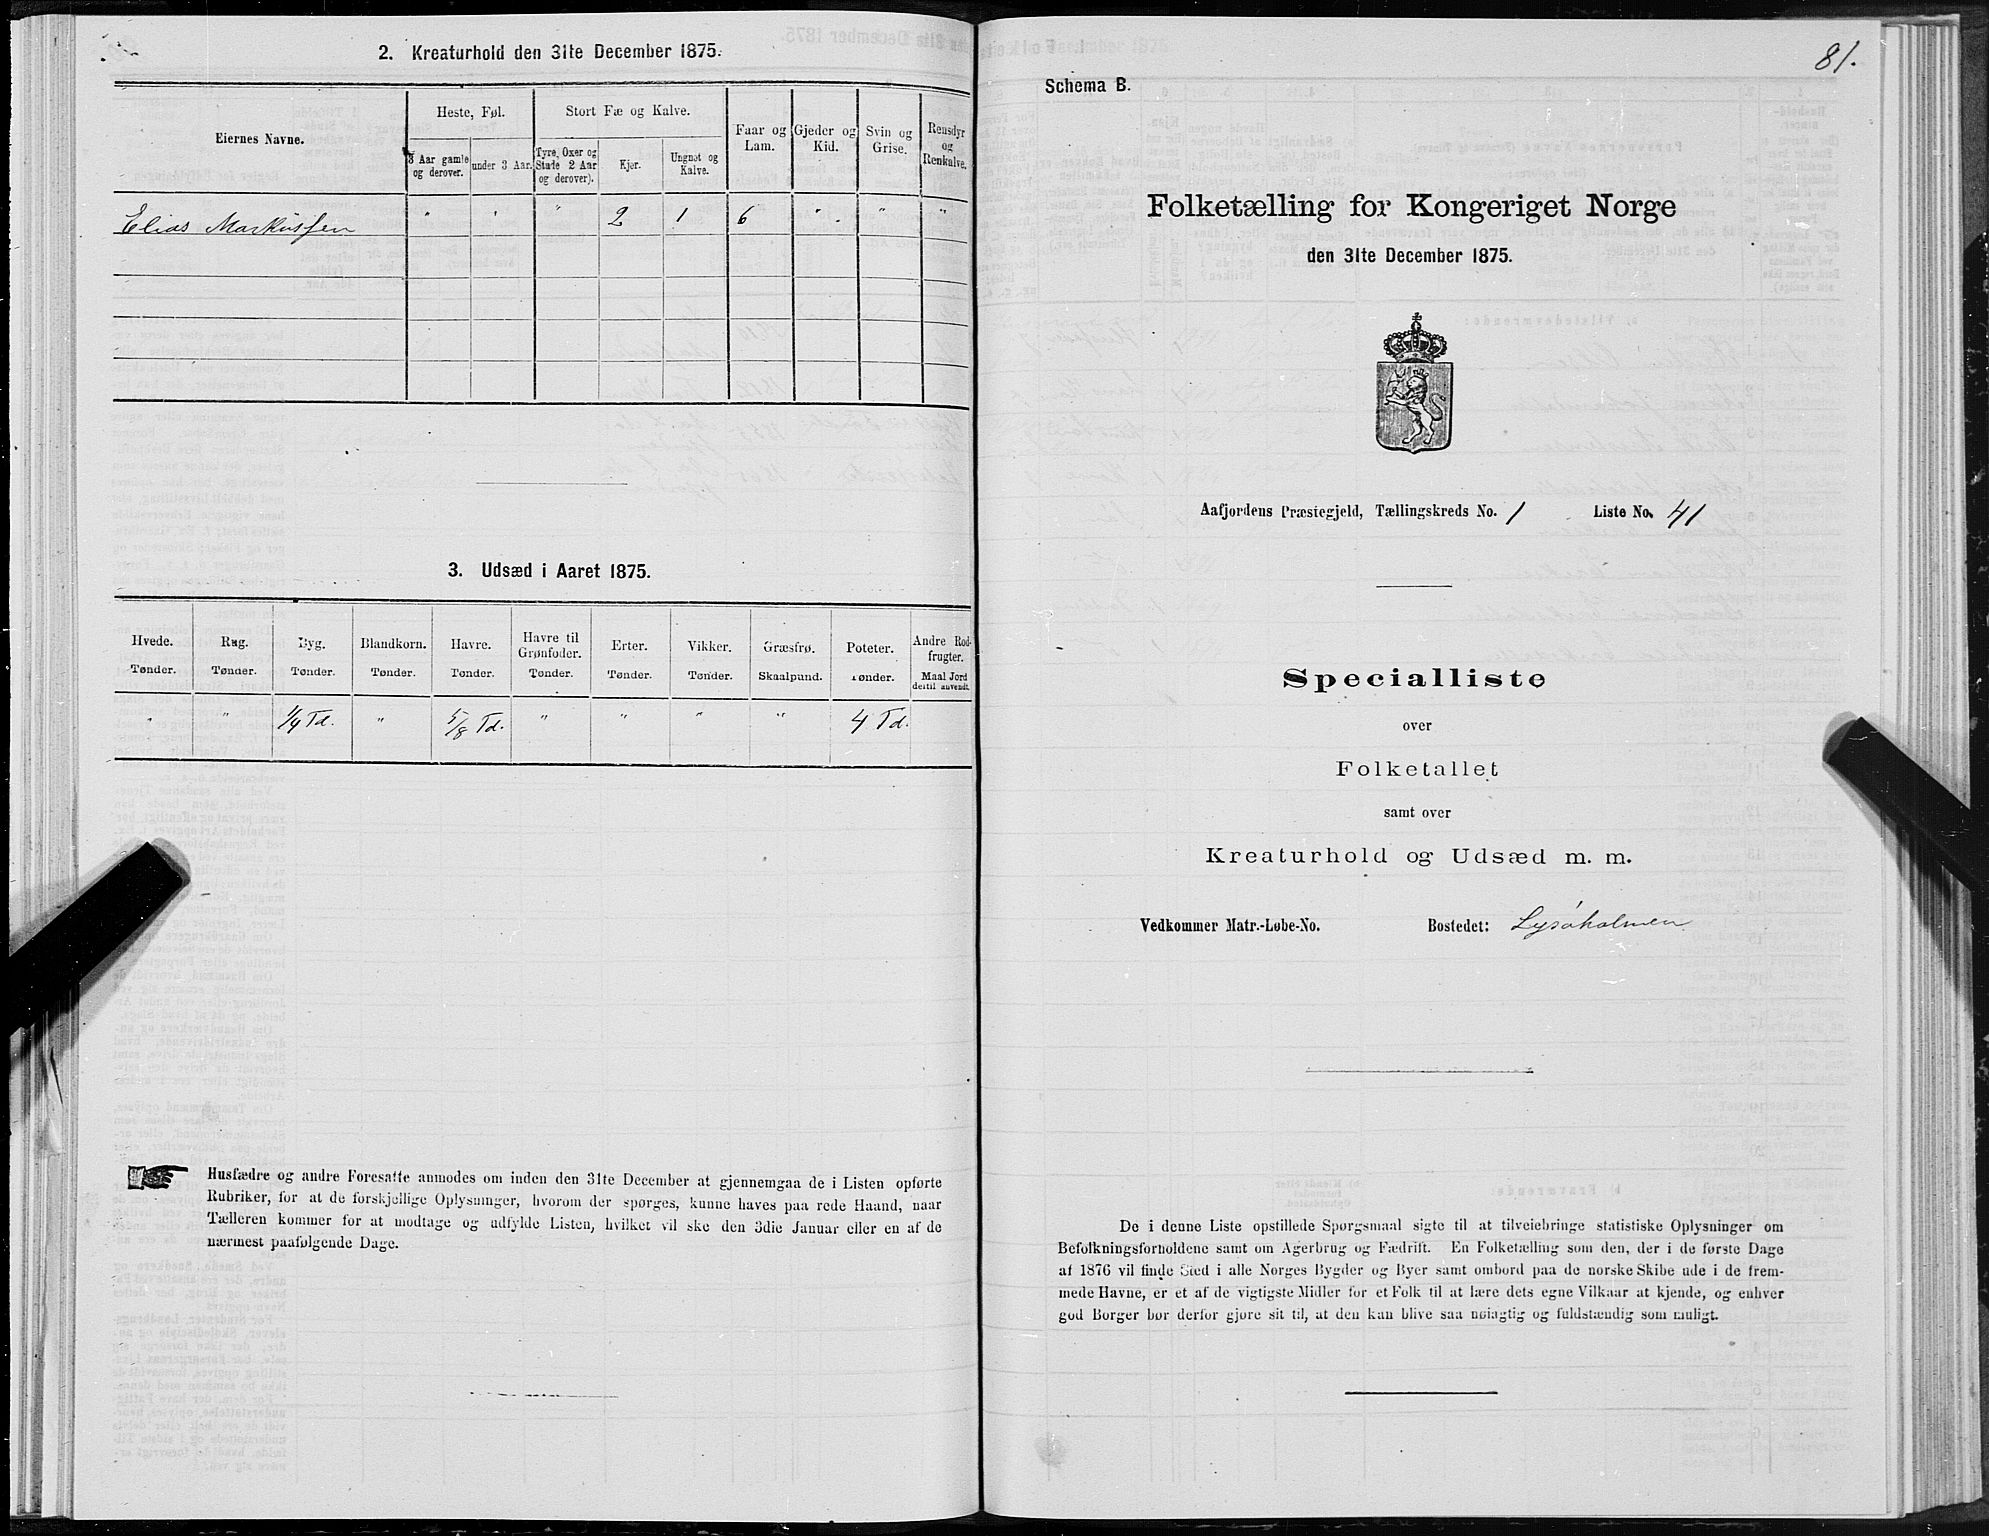 2. Kreaturhold den 31te December 1875.
Eiernes Navne.
Heste, Føl.
Stort Fæ og Kalve.
Faar og
Lam.
Gjeder og
Kid.
Svin og
Grise.
Rensdyr
og
Renkalve.
3 Aar gamle
og derover.
under 3 Aar.
Tyre, Oxer og
Stude 2 Aar
og derover).
Kjør.
Ungnøt og
Kalve.
Elias Markussen " " " 2 1 6 " " "
3. Udsæd i Aaret 1875.
Hvede. Rug. Byg. Blandkorn. Havre. Havre til
Grønfoder. Erter. Vikker. Græsfrø. Poteter. Andre Rod-
frugter.
Tønder. Tønder. Tønder. Tønder. Tønder. Tønder. Tønder. Tønder. Skaalpund. Tønder. Maal Jord
dertil anvendt.
" " 1/4 Td. " 5/8 Td. " " " " 4 Td.
Husfædre og andre Foresatte anmodes om inden den 31te December at gjennemgaa de i Listen opførte
Rubriker, for at de forskjellige Oplysninger, hvorom der spørges, kunne haves paa rede Haand, naar
Tælleren kommer for at modtage og udfylde Listen, hvilket vil ske den 3die Januar eller en af de
nærmest paafølgende Dage.
81.
Schema B.
Folketælling for Kongeriget Norge
den 31te December 1875.
Aafjordens Præstegjeld, Tællingskreds No. 1 Liste No. 41
Specialliste
over
Folketallet
samt over
Kreaturhold og Udsæd m. m.
Vedkommer Matr.-Løbe-No. Bostedet: Lysøholmen
De i denne Liste opstillede Spørgsmaal sigte til at tilveiebringe statistiske Oplysninger om
Befolkningsforholdene samt om Agerbrug og Fædrift. En Folketælling som den, der i de første Dage
af 1876 vil finde Sted i alle Norges Bygder og Byer samt ombord paa de norske Skibe ude i de frem-
mede Havne, er et af de vigtigste Midler for et Folk til at lære dets egne Vilkaar at kjende, og enhver
god Borger bør derfor gjøre sit til, at den kan blive saa nøiagtig og fuldstændig som muligt.